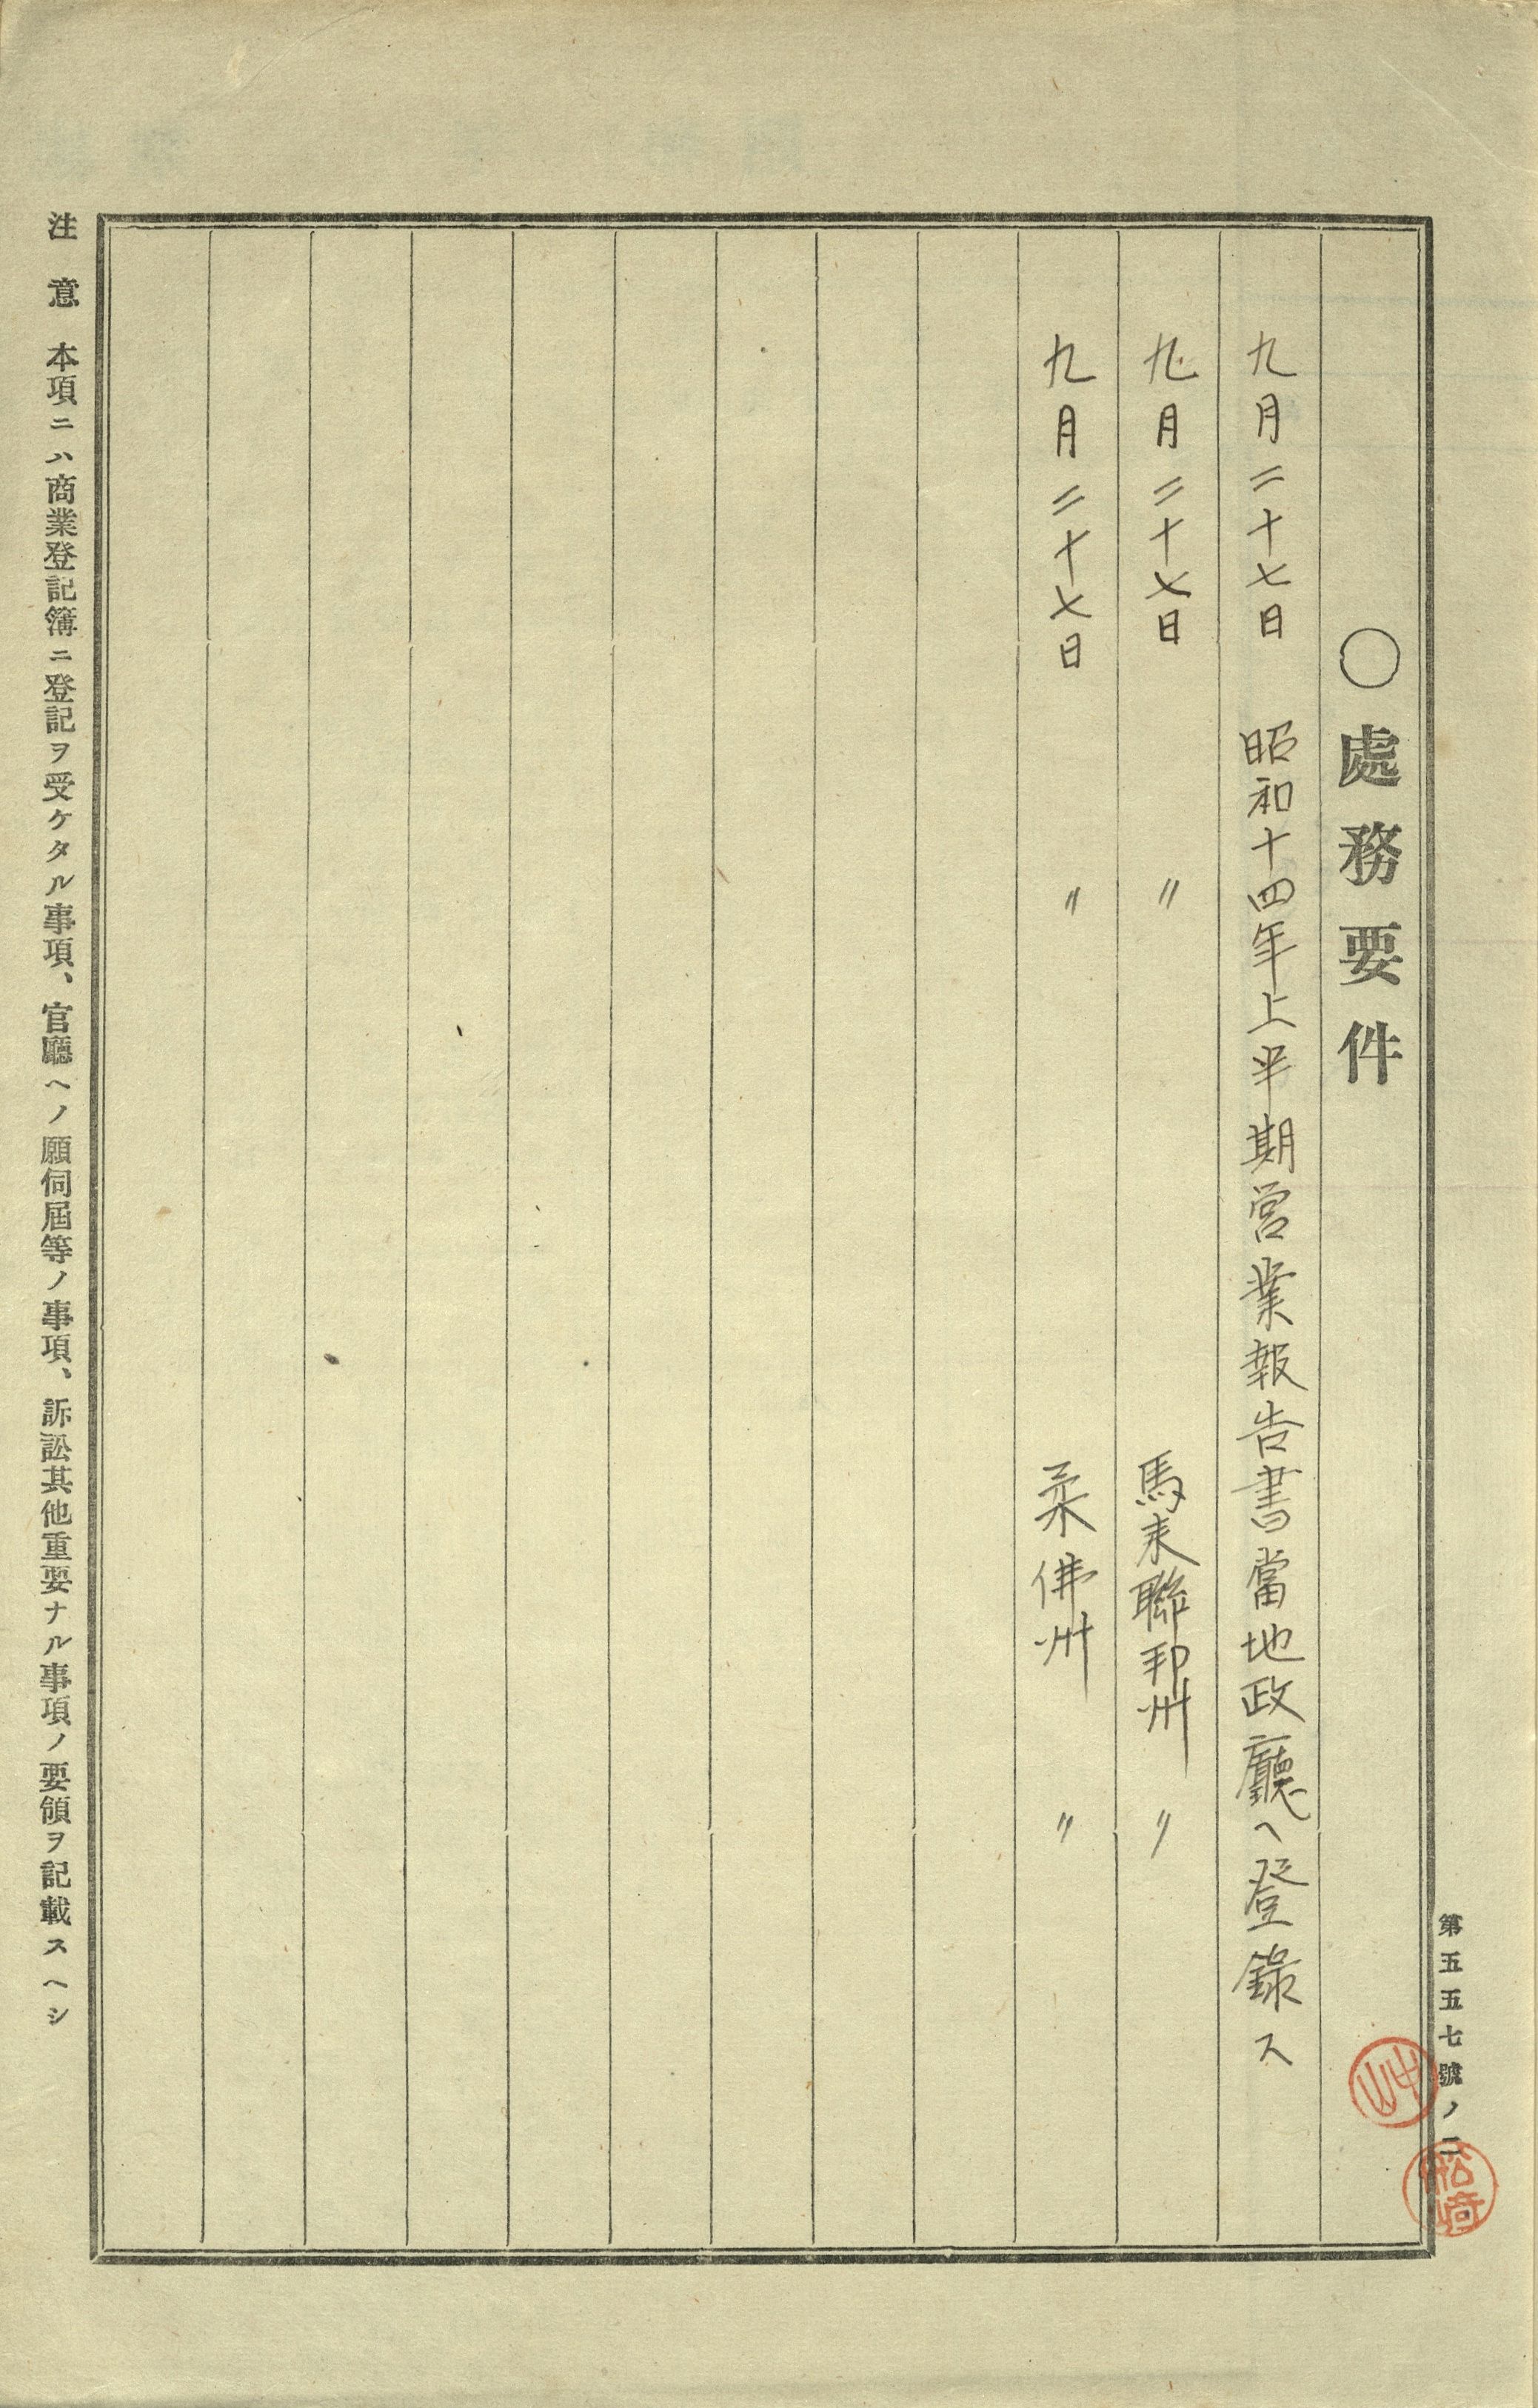 第五五七號ノ二
〇處務要件
九月二十七日 昭和十四年上半期営業報告書當地政廳ヘ登錄ス
九月二十七日 〃 馬来聯邦州 〃
九月二十七日 〃 柔佛州 〃
注意 本項ニハ商業登記簿ニ登記ヲ受ケタル事項、官廳ヘノ願伺屆等ノ事項、訴訟其他重要ナル事項ノ要領ヲ記載スヘシ
中山
松崎